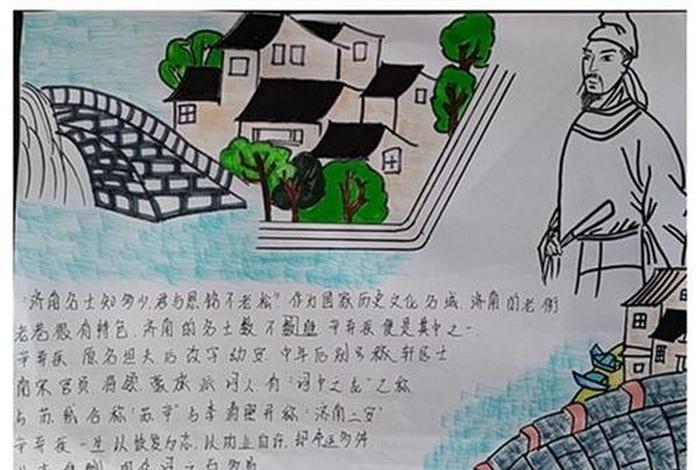 "济南名士知多少,君与恩铭不老松"作为国家历史文化名城,济南的老街
老巷很有特色,济南的名士数不胜数 辛弃疾便是其中之一.
辛弃疾 原名坦夫后改字幼安 中年后别号稼轩居士
南宋官员 将领 豪放派词人有"词中之龙"之称
与苏轼合称"苏辛"与李清照并称"济南二安"
辛弃疾一生以恢复为志,以功业自许,却命运多舛